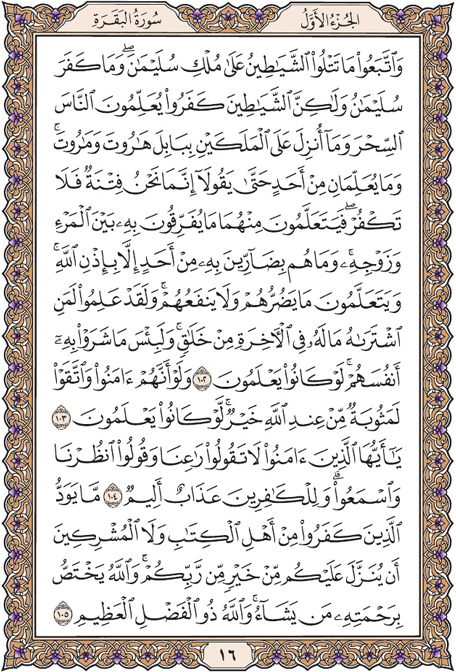 الجُزْءُ الأَوَّلُ
سُورَةُ البَقَرَةِ
وَٱتَّبَعُواْ مَا تَتۡلُواْ ٱلشَّيَٰطِينُ عَلَىٰ مُلۡكِ سُلَيۡمَٰنَۖ وَمَا كَفَرَ
سُلَيۡمَٰنُ وَلَٰكِنَّ ٱلشَّيَٰطِينَ كَفَرُواْ يُعَلِّمُونَ ٱلنَّاسَ
ٱلسِّحۡرَ وَمَآ أُنزِلَ عَلَى ٱلۡمَلَكَيۡنِ بِبَابِلَ هَٰرُوتَ وَمَٰرُوتَۚ
وَمَا يُعَلِّمَانِ مِنۡ أَحَدٍ حَتَّىٰ يَقُولَآ إِنَّمَا نَحۡنُ فِتۡنَةٞ فَلَا
تَكۡفُرۡۖ فَيَتَعَلَّمُونَ مِنۡهُمَا مَا يُفَرِّقُونَ بِهِۦ بَيۡنَ ٱلۡمَرۡءِ
وَزَوۡجِهِۦۚ وَمَا هُم بِضَآرِّينَ بِهِۦ مِنۡ أَحَدٍ إِلَّا بِإِذۡنِ ٱللَّهِۚ
وَيَتَعَلَّمُونَ مَا يَضُرُّهُمۡ وَلَا يَنفَعُهُمۡۚ وَلَقَدۡ عَلِمُواْ لَمَنِ
ٱشۡتَرَىٰهُ مَا لَهُۥ فِي ٱلۡأٓخِرَةِ مِنۡ خَلَٰقٖۚ وَلَبِئۡسَ مَا شَرَوۡاْ بِهِۦٓ
أَنفُسَهُمۡۚ لَوۡ كَانُواْ يَعۡلَمُونَ ١٠٢ وَلَوۡ أَنَّهُمۡ ءَامَنُواْ وَٱتَّقَوۡاْ
لَمَثُوبَةٞ مِّنۡ عِندِ ٱللَّهِ خَيۡرٞۚ لَّوۡ كَانُواْ يَعۡلَمُونَ ١٠٣
يَٰٓأَيُّهَا ٱلَّذِينَ ءَامَنُواْ لَا تَقُولُواْ رَٰعِنَا وَقُولُواْ ٱنظُرۡنَا
وَٱسۡمَعُواْۗ وَلِلۡكَٰفِرِينَ عَذَابٌ أَلِيمٞ ١٠٤ مَّا يَوَدُّ
ٱلَّذِينَ كَفَرُواْ مِنۡ أَهۡلِ ٱلۡكِتَٰبِ وَلَا ٱلۡمُشۡرِكِينَ
أَن يُنَزَّلَ عَلَيۡكُم مِّنۡ خَيۡرٖ مِّن رَّبِّكُمۡۚ وَٱللَّهُ يَخۡتَصُّ
بِرَحۡمَتِهِۦ مَن يَشَآءُۚ وَٱللَّهُ ذُو ٱلۡفَضۡلِ ٱلۡعَظِيمِ ١٠٥
١٦